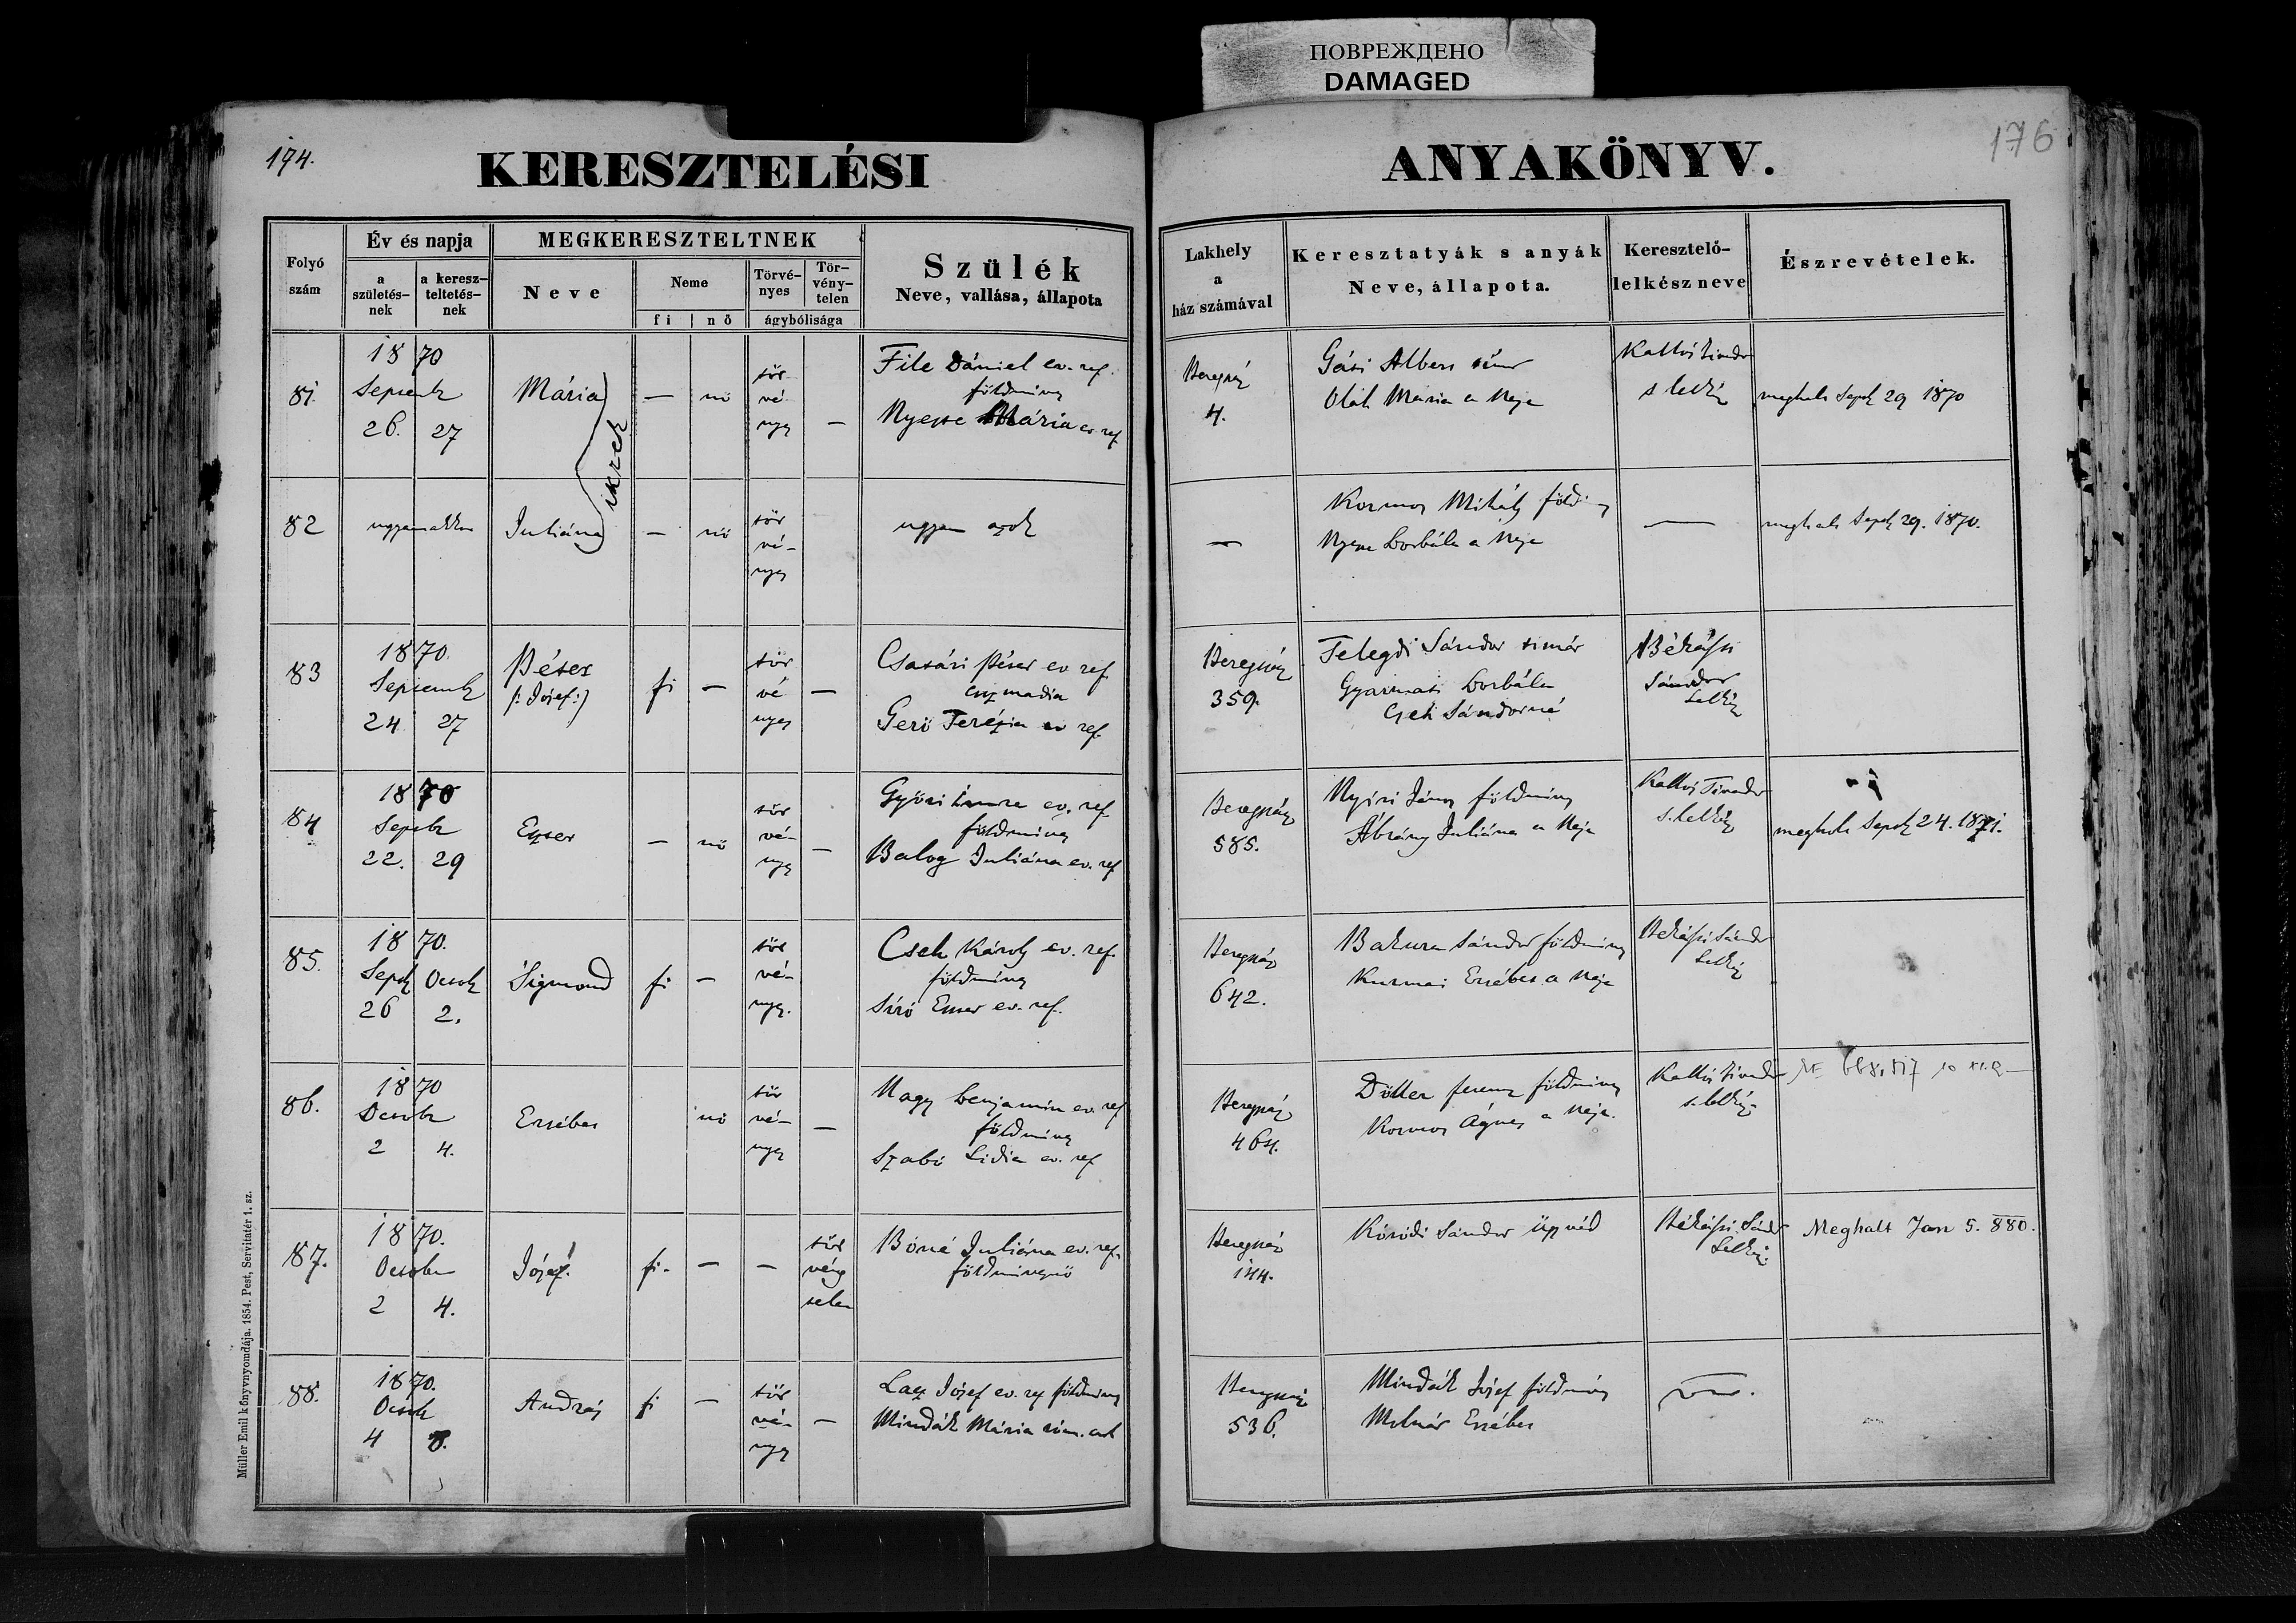 ПОВРЕЖДЕНО
DAMAGED
174.
KERESZTELÉSI
ANYAKÖNYV.
176
Folyó szám
Év és napja
a születés-nek
a keresz-teltetés-nek
MEGKERESZTELTNEK
Neve
Neme
fi | nő
Törvé-nyes
Tör-vény-telen
ágybólisága
Szülék
Neve, vallása, állapota
Lakhely
a
ház számával
Keresztatyák s anyák
Neve, állapota.
Keresztelő-
lelkész neve
Észrevételek.
81.
1870
Septemb
26. 27
Mária
ikrek
—
nő
tör
vé
nys
—
File Dániel ev. ref.
földműves
Nyeste Mária ev. ref
Beregsz
4.
Gási Albert
Oláh Mária a neje
s. lelkész
meghalt Sept 29 1870
82
ugyanakkor
Juliána
—
nő
tör
vé-
nyes
ugyan azok
—
Kormos Mihály föld
Borbála a neje
—
meghalt Sept 29. 1870.
83
1870.
Septemb
24 27
Péter
(: József :)
fi
—
tör
vé
nyes
—
Császári Péter ev ref
csizmadia
Gerő Terézia ev ref.
Beregszász
359.
Telegdi Sándor timár
Gyarmati Borbála
Cseh Sándorné
Békássi
Sándor
lelkész
84
1870
Septbr
22. 29
Eszter
—
nő
tör
vé-
nys
—
Győri Imre ev. ref
földműves
Balog Juliána ev. ref
Beregszász
585.
Nyiri János földműves
Ábrány Juliána a neje
s. lelkész
meghalt Sept 24. 1871.
85.
1870.
Sept Octob
26 2.
Sigmond
fi
—
tör
vé-
nys.
Cseh Károly ev. ref.
földműves
Siró Eszter ev. ref.
Beregsz
642.
Bakura Sándor földműves
Erzsébet a neje
Békássi Sándor
lelkész
86.
1870
Octobr
2 4.
Erzsébet
nő
tör
vé-
nys
—
Nagy Benjamin ev. ref
földműves
Szabó Lidia ev. ref
Beregsz
464.
Ferenc földműves
Kormos Ágnes a neje.
s. lelkész
87.
1870.
Octobr
2 4.
József.
fi.
—
—
tör
vény
telen
Bóné Juliána ev. ref.
földművesnő
Beregsz
144.
Kóródi Sándor ügyvéd
Békássi Sándor
lelkész
Meghalt Jan 5. 880.
88.
1870.
Octob
4 8.
András
fi
—
tör
vé-
nys
—
József ev. ref földműves
Mindák Mária róm. cath
Beregszász
536.
Mindák József földműves
Molnár Erzsébet
Müller Emil könyvnyomdája. 1854. Pest, Servitatér 1. sz.